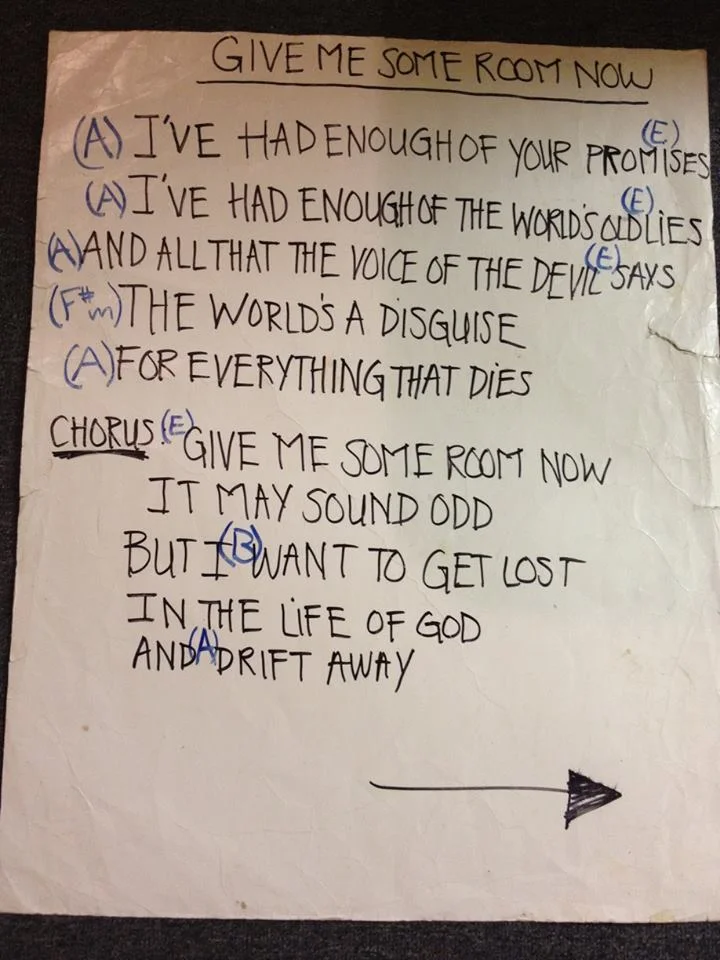 GIVE ME SOME ROOM NOW
(A) I'VE HAD ENOUGH OF YOUR PROMISES (E)
(A) I'VE HAD ENOUGH OF THE WORLD'S OLD (E) LIES
(A) AND ALL THAT THE VOICE OF THE DEVIL (E) SAYS
(F#m) THE WORLD'S A DISGUISE
(A) FOR EVERYTHING THAT DIES
CHORUS. (E) GIVE ME SOME ROOM NOW
IT MAY SOUND ODD
BUT I (B) WANT TO GET LOST
IN THE LIFE OF GOD
AND (A) DRIFT AWAY